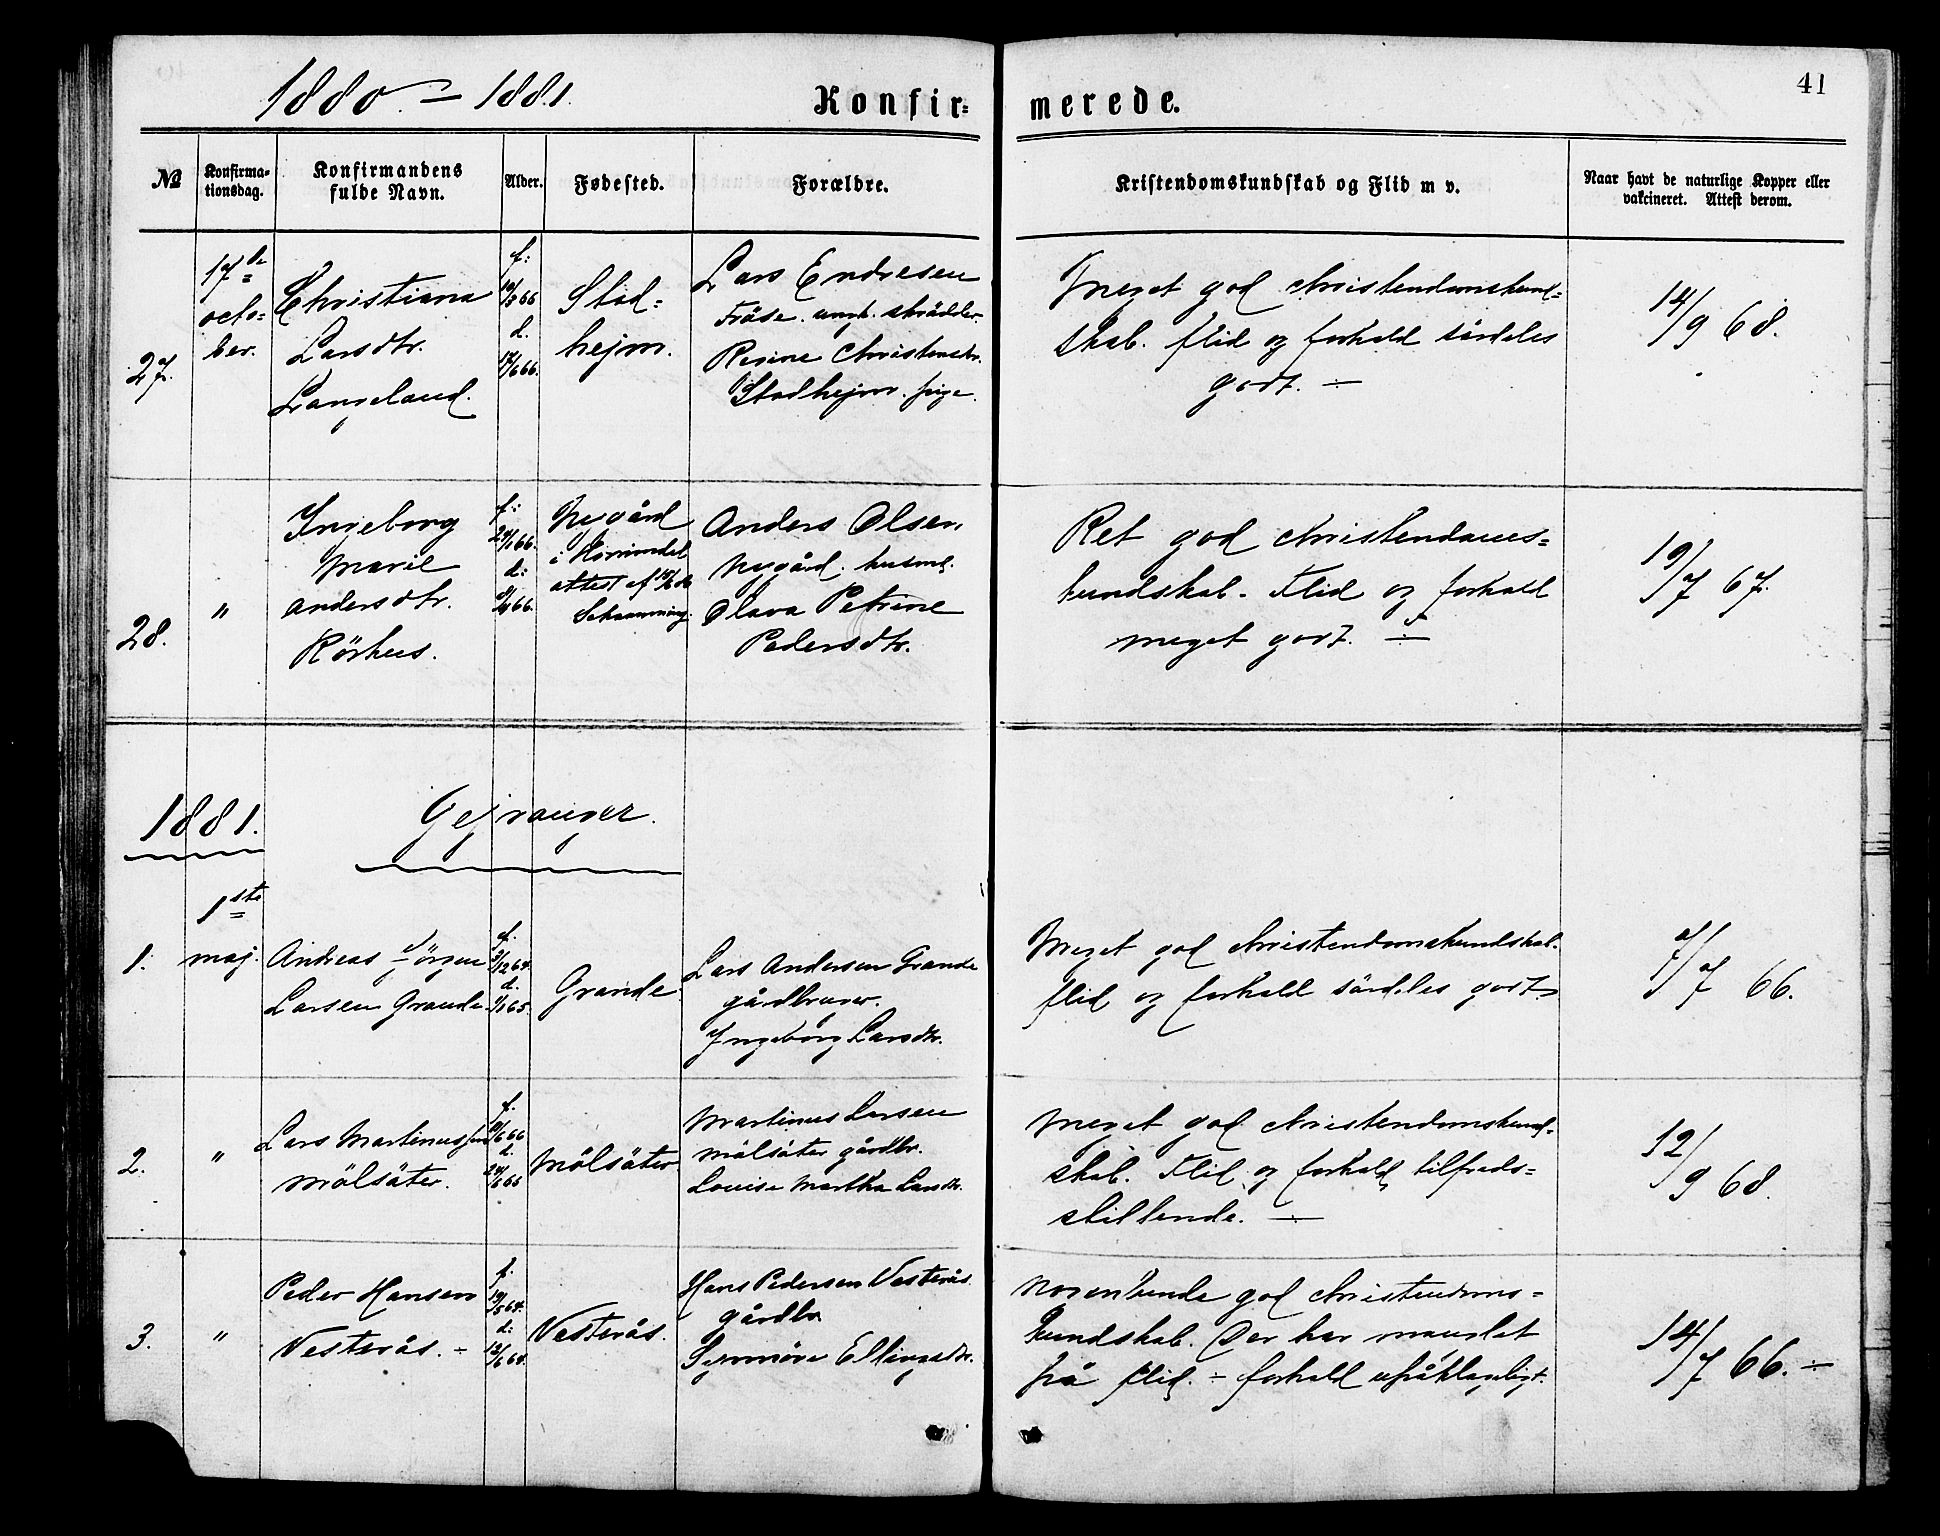 1880. – 1881.
Konfir=
merede.
41
№
Konfirma-
tionsdag.
Konfirmandens
fulde Navn.
Alder.
Fødested.
Forældre.
Kristendomskundskab og Flid m v.
Naar havt de naturlige Kopper eller
vakcineret. Attest derom.
27.
17de
octo-
ber.
Christiana
Larsdtr.
Langeland.
f:
d.
17/6 66.
Stad=
hejm.
Lars Endresen
Fröse. ungk. skrädder.
Regine Christensdr.
Stadhejm. pige.
Meget god christendomskund=
skab. flid og forhold särdeles
godt. ÷
14/9 68.
28.
"
Ingeborg
Marie
Andersdtr.
Rörhus.
f:
66.
d:
66.
Nygård
i Hornindal
attest af
Anders Olsen
Nygård. husmd.
Olava Petrine
Pedersdtr.
Ret god christendoms=
kundskab. Flid og forhold
meget godt. ÷
19/7 67.
1881.
Gejranger.
1.
1ste
maj.
Andreas Jörgen
Larsen Grande
f.
3/12 64.
d.
1/1 65.
Grande.
Lars Andersen Grande
gårdbruger.
Ingeborg Larsdtr.
Meget god christendomskundskab.
flid og forhold särdeles godt.
7/7 66.
2.
"
Lars Martinussen
Mölsäter.
f.
66
d.
Mölsäter
Martinus Larsen
Mölsäter gårdbr.
Louise Martha Larsdtr.
Meget god christendomskund=
skab. Flid og forhold tilfreds=
stillende. ÷
12/9 68.
3.
"
Peder Hansen
Vesterås. ÷
f.
19/5 64.
d:
12/6 64.
Vesterås.
Hans Pedersen Vesterås.
gårdbr.
Synnöve Ellingsdtr.
Nogenlunde god christendoms=
kundskab. Der har manglet
på flid. ÷ forhold upåklageligt.
14/7 66. ÷